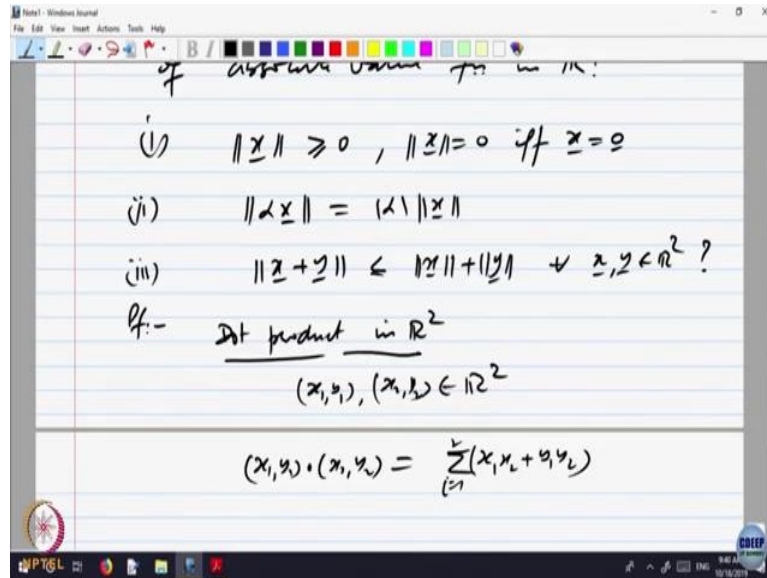 Note1 - Windows Journal
File Edit View Insert Actions Tools Help
B I
of absolute value fn in ℝ!
(i) ||x|| ⩾ 0 , ||x|| = 0 iff x = 0
(ii) ||αx|| = |α| ||x||
(iii) ||x + y|| ≤ ||x|| + ||y|| ∀ x, y ∈ ℝ² ?
Pf:-
Dot product in ℝ²
(x₁, y₁), (x₂, y₂) ∈ ℝ²
(x₁, y₁) · (x₂, y₂) = ∑ᵢ₌₁² (x₁x₂ + y₁y₂)
NPTEL
CDEEP
ENG
9:40 AM
10/18/2019